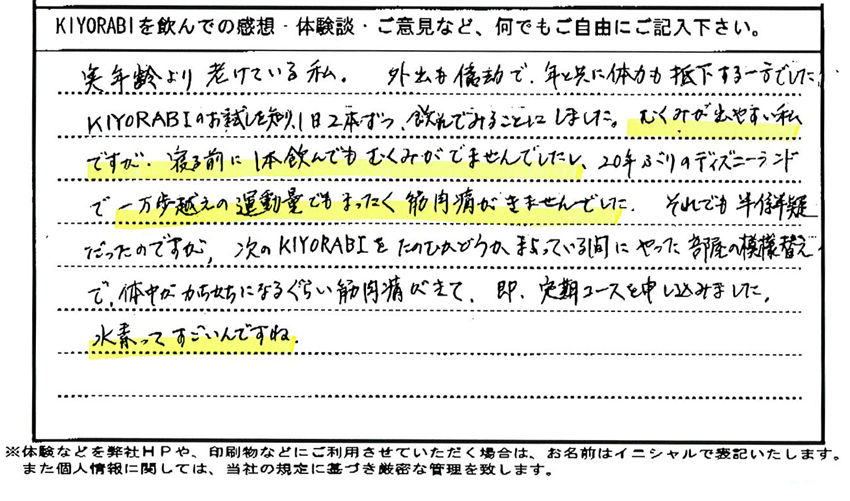 KIYORABIを飲んでの感想・体験談・ご意見など、何でもご自由にご記入下さい。
実年齢より老けている私。外出も億劫で、年と共に体力も低下する一方でした。
KIYORABIのお試しを知り、1日2本ずつ、飲んでみることにしました。むくみが出やすい私
ですが、寝る前に1本飲んでもむくみがでませんでしたし、20年ぶりのディズニーランド
で一万歩越えの運動量でもまったく筋肉痛がきませんでした。それでも半信半疑
だったのですが、次のKIYORABIをたのむかどうかまよっている間にやった部屋の模様替え
で、体中がカチカチになるぐらい筋肉痛がきて、即、定期コースを申し込みました。
水素ってすごいんですね。
※体験などを弊社HPや、印刷物などにご利用させていただく場合は、お名前はイニシャルで表記いたします。
また個人情報に関しては、当社の規定に基づき厳密な管理を致します。